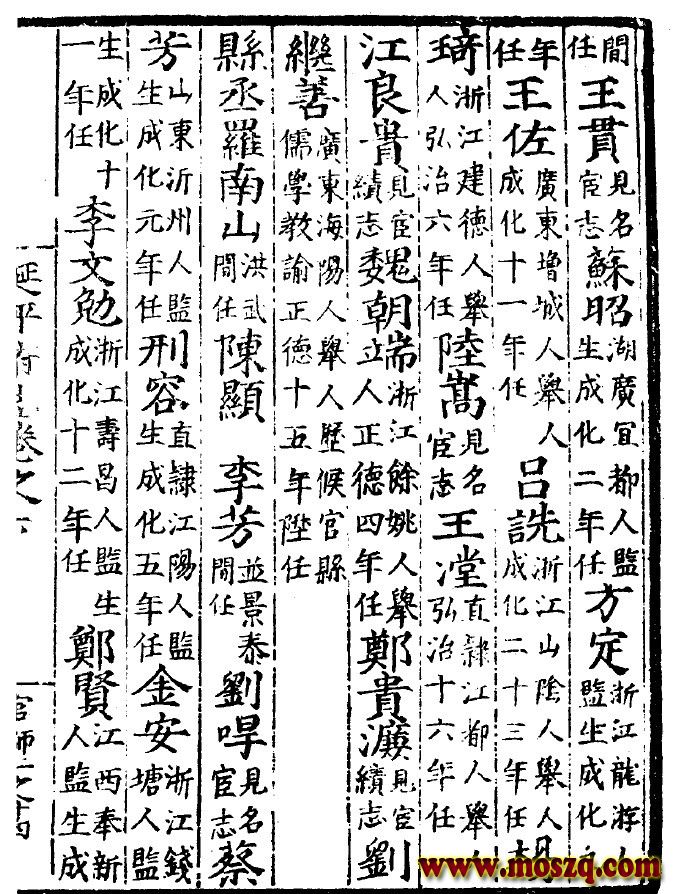 間任王貫見名宦志蘇昭湖廣宜都人監生成化二年任方定浙江龍游人監生成化
年任王佐廣東增城人舉人成化十一年任呂詵浙江山陰人舉人成化二十三年任胡
琦浙江建德人舉人弘治六年任陸嵩見名宦志王漟直隸江都人舉人弘治十六年任
江良貴見宦績志魏朝端浙江餘姚人舉人正德四年任鄭貴見宦績志劉
繼善廣東海陽人舉人歷候官縣儒學教諭正德十五年陞任
縣丞羅南山洪武間任陳顯 李芳並景泰間任劉㖕見名宦志蔡
芳山東沂州人監生成化元年任刑容直隸江陽人監生成化五年任金安浙江錢塘人監
生成化十一年任李文勉浙江壽昌人監生成化十二年任鄭賢江西奉新人監生成
延平府志卷之六 官師
www.moszq.com